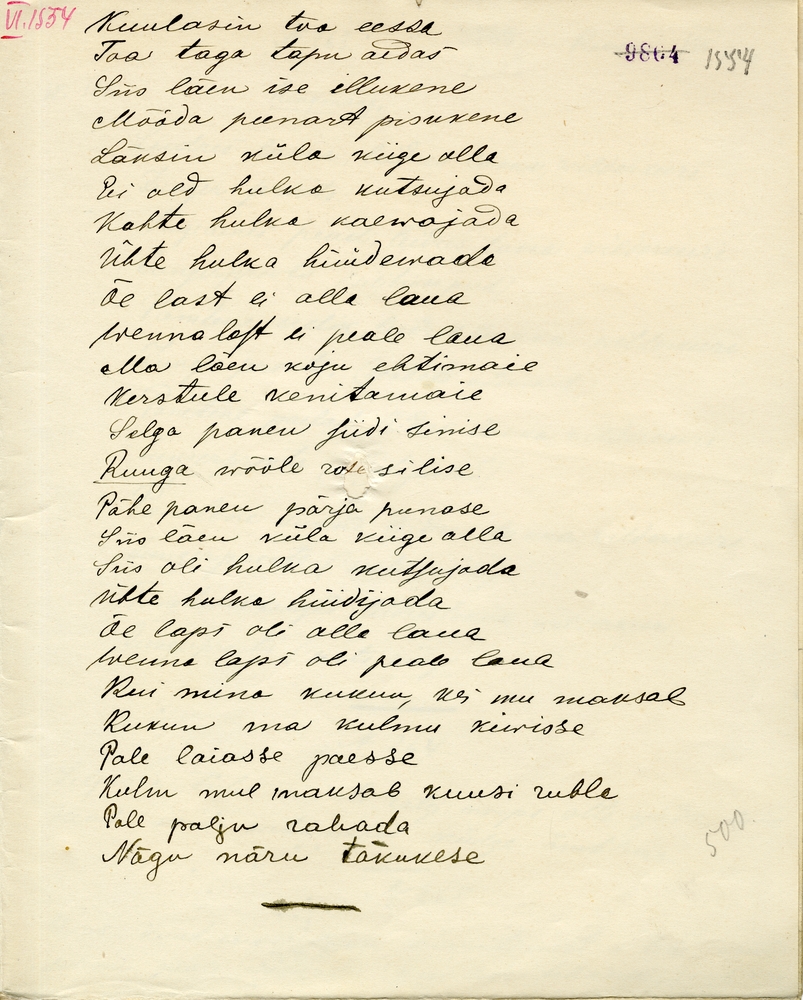 VI. 1554
9864 1554
Kuulasin toa eessa
Toa taga tapu aedas
Siis läen ise illukene
Mööda peenart pisukene
Läksin küla kiige alla
Ei old hulka kutsujada
Kahte hulka kaewajada
Ühte hulka hüüdewada
Õe last ei alla laua
Wenna last ei peale laua
Ma läen koju ehtimaie
Kerstule kenitamaie
Selga panen siidi sinise
Ruuga wööle rosesilise
Pähe panen pärja punase
Siis läen küla kiige alla
Siis oli hulka kutsujada
Ühte hulka hüidijada
Õe laps oli alla laua
Wenna laps oli peale laua
Kui mina kukun, kes mu maksab
Kukun ma kulmu kiwisse
Pale laiasse paesse
Kulm mul maksab kuusi rubla
Pale palju rahada
Nägu näru täkukese
500.